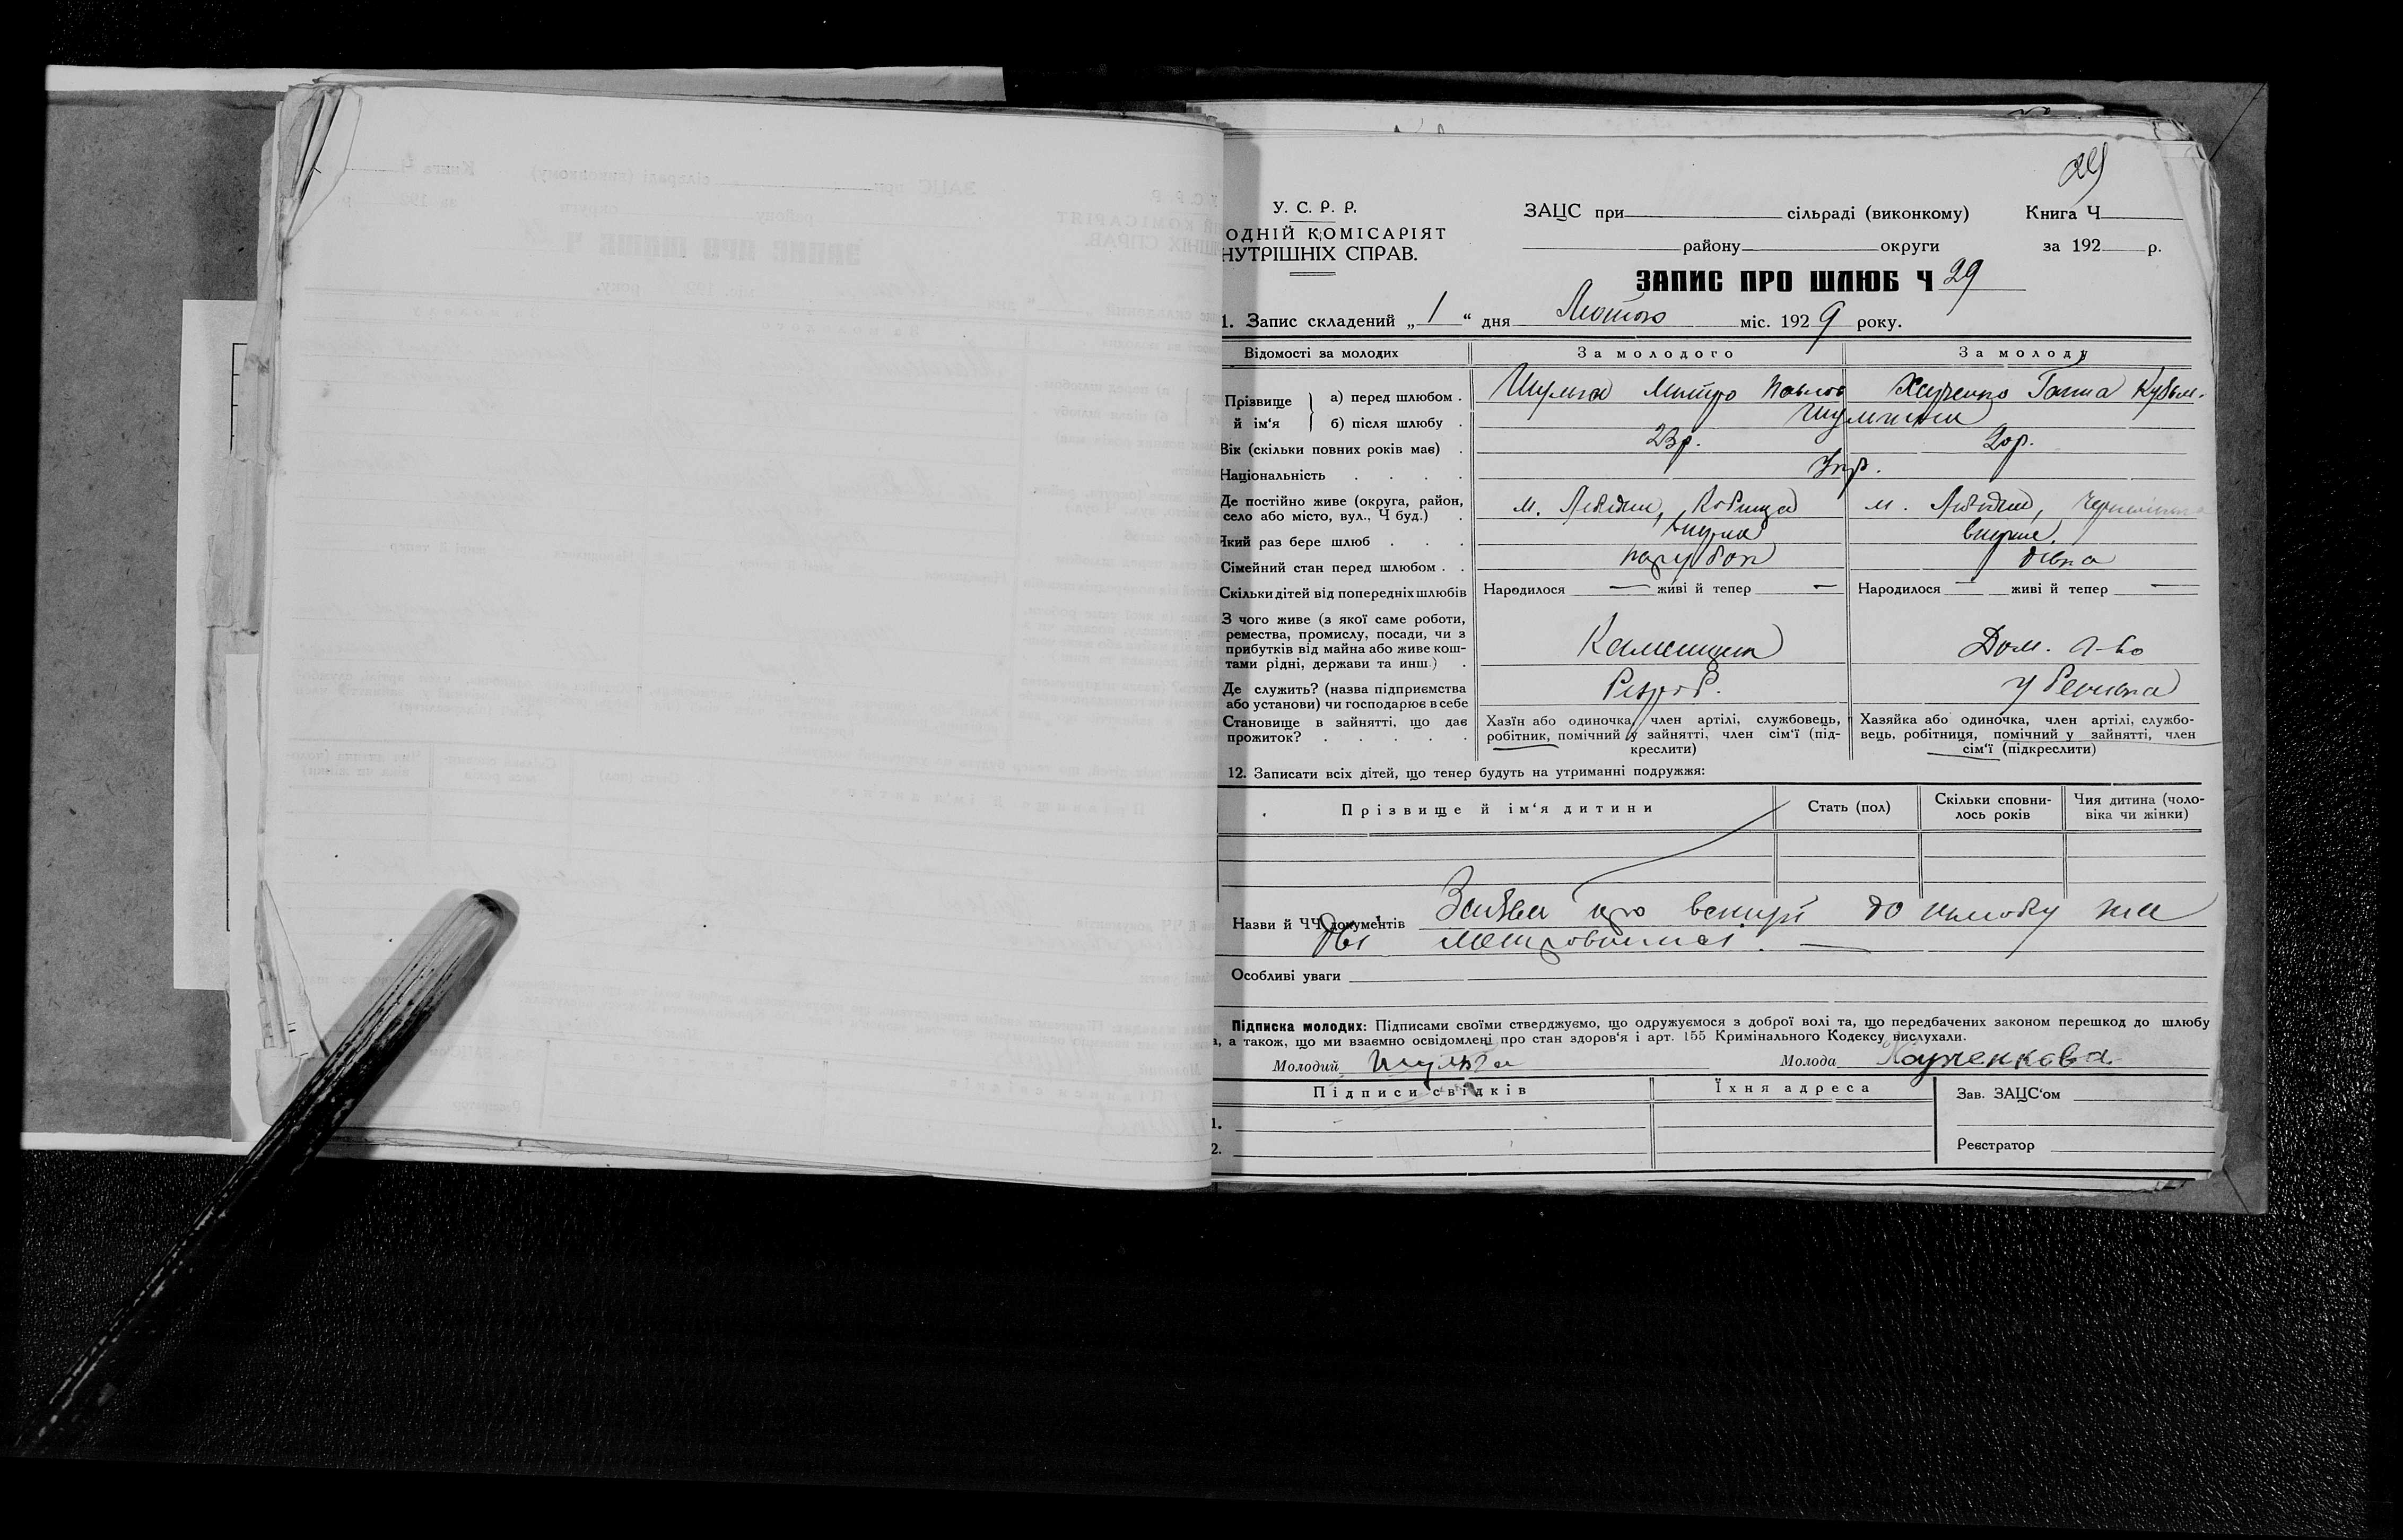 29
У. С. Р. Р.
ОДНІЙ КОМІСАРІЯТ
НУТРІШНІХ СПРАВ.
ЗАЦС при сільраді (виконкому) Книга Ч
району округи за 192 р.
ЗАПИС ПРО ШЛЮБ Ч 29
1. Запис складений „ 1 “ дня Лютого міс. 1929 року.
Відомості за молодих За молодого За молоду
Прізвище й ім‘я а) перед шлюбом . Шульга Митро Павлов Ганна Кузьм.
б) після шлюбу .
Вік (скільки повних років має) . 23 р. 20 р.
Національність . . . . Укр.
Де постійно живе (округа, район, село або місто, вул., Ч буд.) . м. Лебедин, м. Лебедин,
Який раз бере шлюб . . . вперше вперше.
Сімейний стан перед шлюбом . . парубок дівка
Скільки дітей від попередніх шлюбів Народилося — живі й тепер — Народилося — живі й тепер —
З чого живе (з якої саме роботи,
ремества, промислу, посади, чи з
прибутків від майна або живе кош-
тами рідні, держави та инш.) . Каменщик Дом. г-во
Де служить? (назва підприємства
або установи) чи господарює в себе
Становище в зайнятті, що дає
прожиток? . . . . .
Хазїн або одиночка, член артілі, службовець,
робітник, помічний у зайнятті, член сім‘ї (під-
креслити)
Хазяйка або одиночка, член артілі, службо-
вець, робітниця, помічний у зайнятті, член
сім‘ї (підкреслити)
12. Записати всіх дітей, що тепер будуть на утриманні подружжя:
Прізвище й ім‘я дитини Стать (пол) Скільки сповни-
лось років Чия дитина (чоло-
віка чи жінки)
Назви й ЧЧ документів Заява про вступ до шлюбу та
дві метровиписі. —
Особливі уваги
Підписка молодих: Підписами своїми стверджуємо, що одружуємося з доброї волі та, що передбачених законом перешкод до шлюбу
а, а також, що ми взаємно освідомлені про стан здоров‘я і арт. 155 Кримінального Кодексу вислухали.
Молодий Шульга Молода
Підписи свідків Їхня адреса Зав. ЗАЦС‘ом
1.
2. Реєстратор